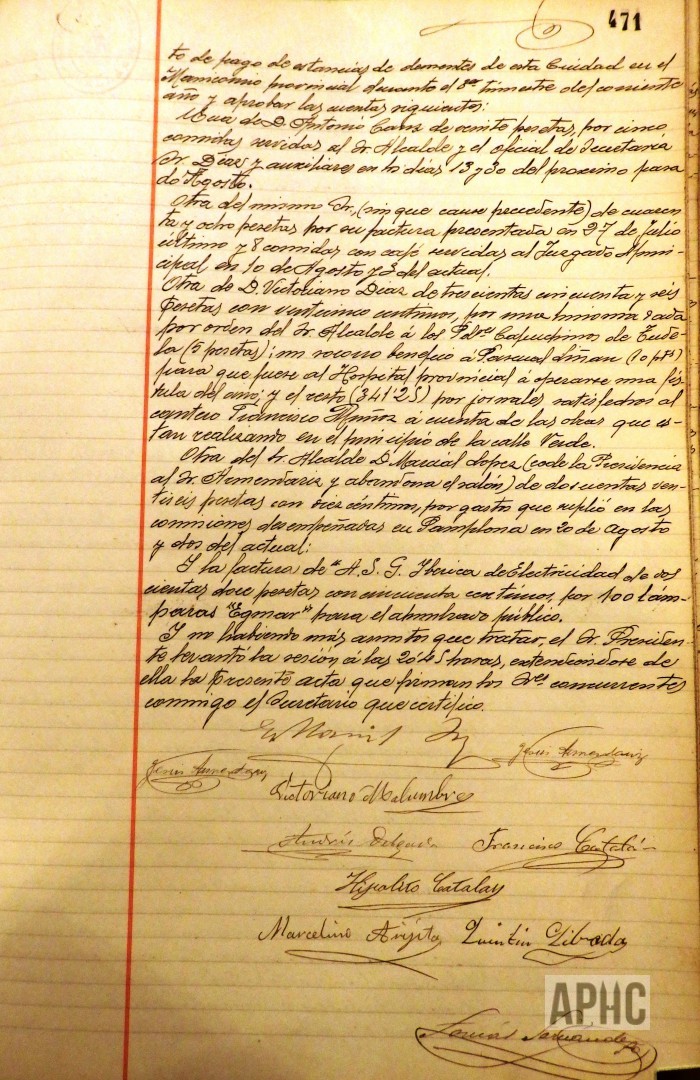 471
to de pago de estancias de dementes de esta Ciudad en el
Manicomio provincial durante el 3er trimestre del corriente
año y aprobar las cuentas siguientes:
Una de D. Antonio Sanz de veinte pesetas, por cinco
comidas servidas al Sr. Alcalde y el oficial de Secretaria
Sr. Diaz y auxiliares en los dias 13 y 30 del proximo pasa
do Agosto.
Otra del mismo Sr, (sin que cause precedente) de cuaren
ta y ocho pesetas por su factura presentada en 27 de julio
último y 8 comidas con café servidas al Juzgado Muni-
cipal en 10 de Agosto y 3 del actual.
Otra de D. Victoriano Diaz de trescientas cincuenta y seis
pesetas con venticinco centimos, por una limosna dada
por orden del Sr. Alcalde á los Pdres Capuchinos de Tude
la (5 pesetas); un socorro benefico á Pascual Liñan (10 pts)
para que fuese al Hospital provincial á operarse una fis
tula del ano; y el resto (341'25) por jornales satisfechos al
cantero Francisco Muñoz á cuenta de las obras que es-
tan realizando en el principio de la calle Verde.
Otra del Sr. Alcalde D. Marcial Lopez (cede la Presidencia
al Sr. Armendariz y abandona el salón) de doscientas ven
tiseis pesetas con diez céntimos, por gastos que suplió en las
comisiones desempeñadas en Pamplona en 20 de agosto
y dos del actual:
Y la factura de "A. S. G. Iberica de Electricidad de dos
cientas doce pesetas con cincuenta centimos, por 100 lám-
paras "Egmar" para el alumbrado público.
Y no habiendo más asuntos que tratar, el Sr. Presiden-
te levantó la sesión á las 20'45 horas, extendiendose de
ella la presente acta que firman los Sres concurrentes
conmigo el Secretario que certifico.
Jesus Armendariz
Jesus Armendariz
Victoriano Malumbres
Andrés Delgado Francisco Catalán
Hipolito Catalan
Marcelino Arpita Quintin
APHC